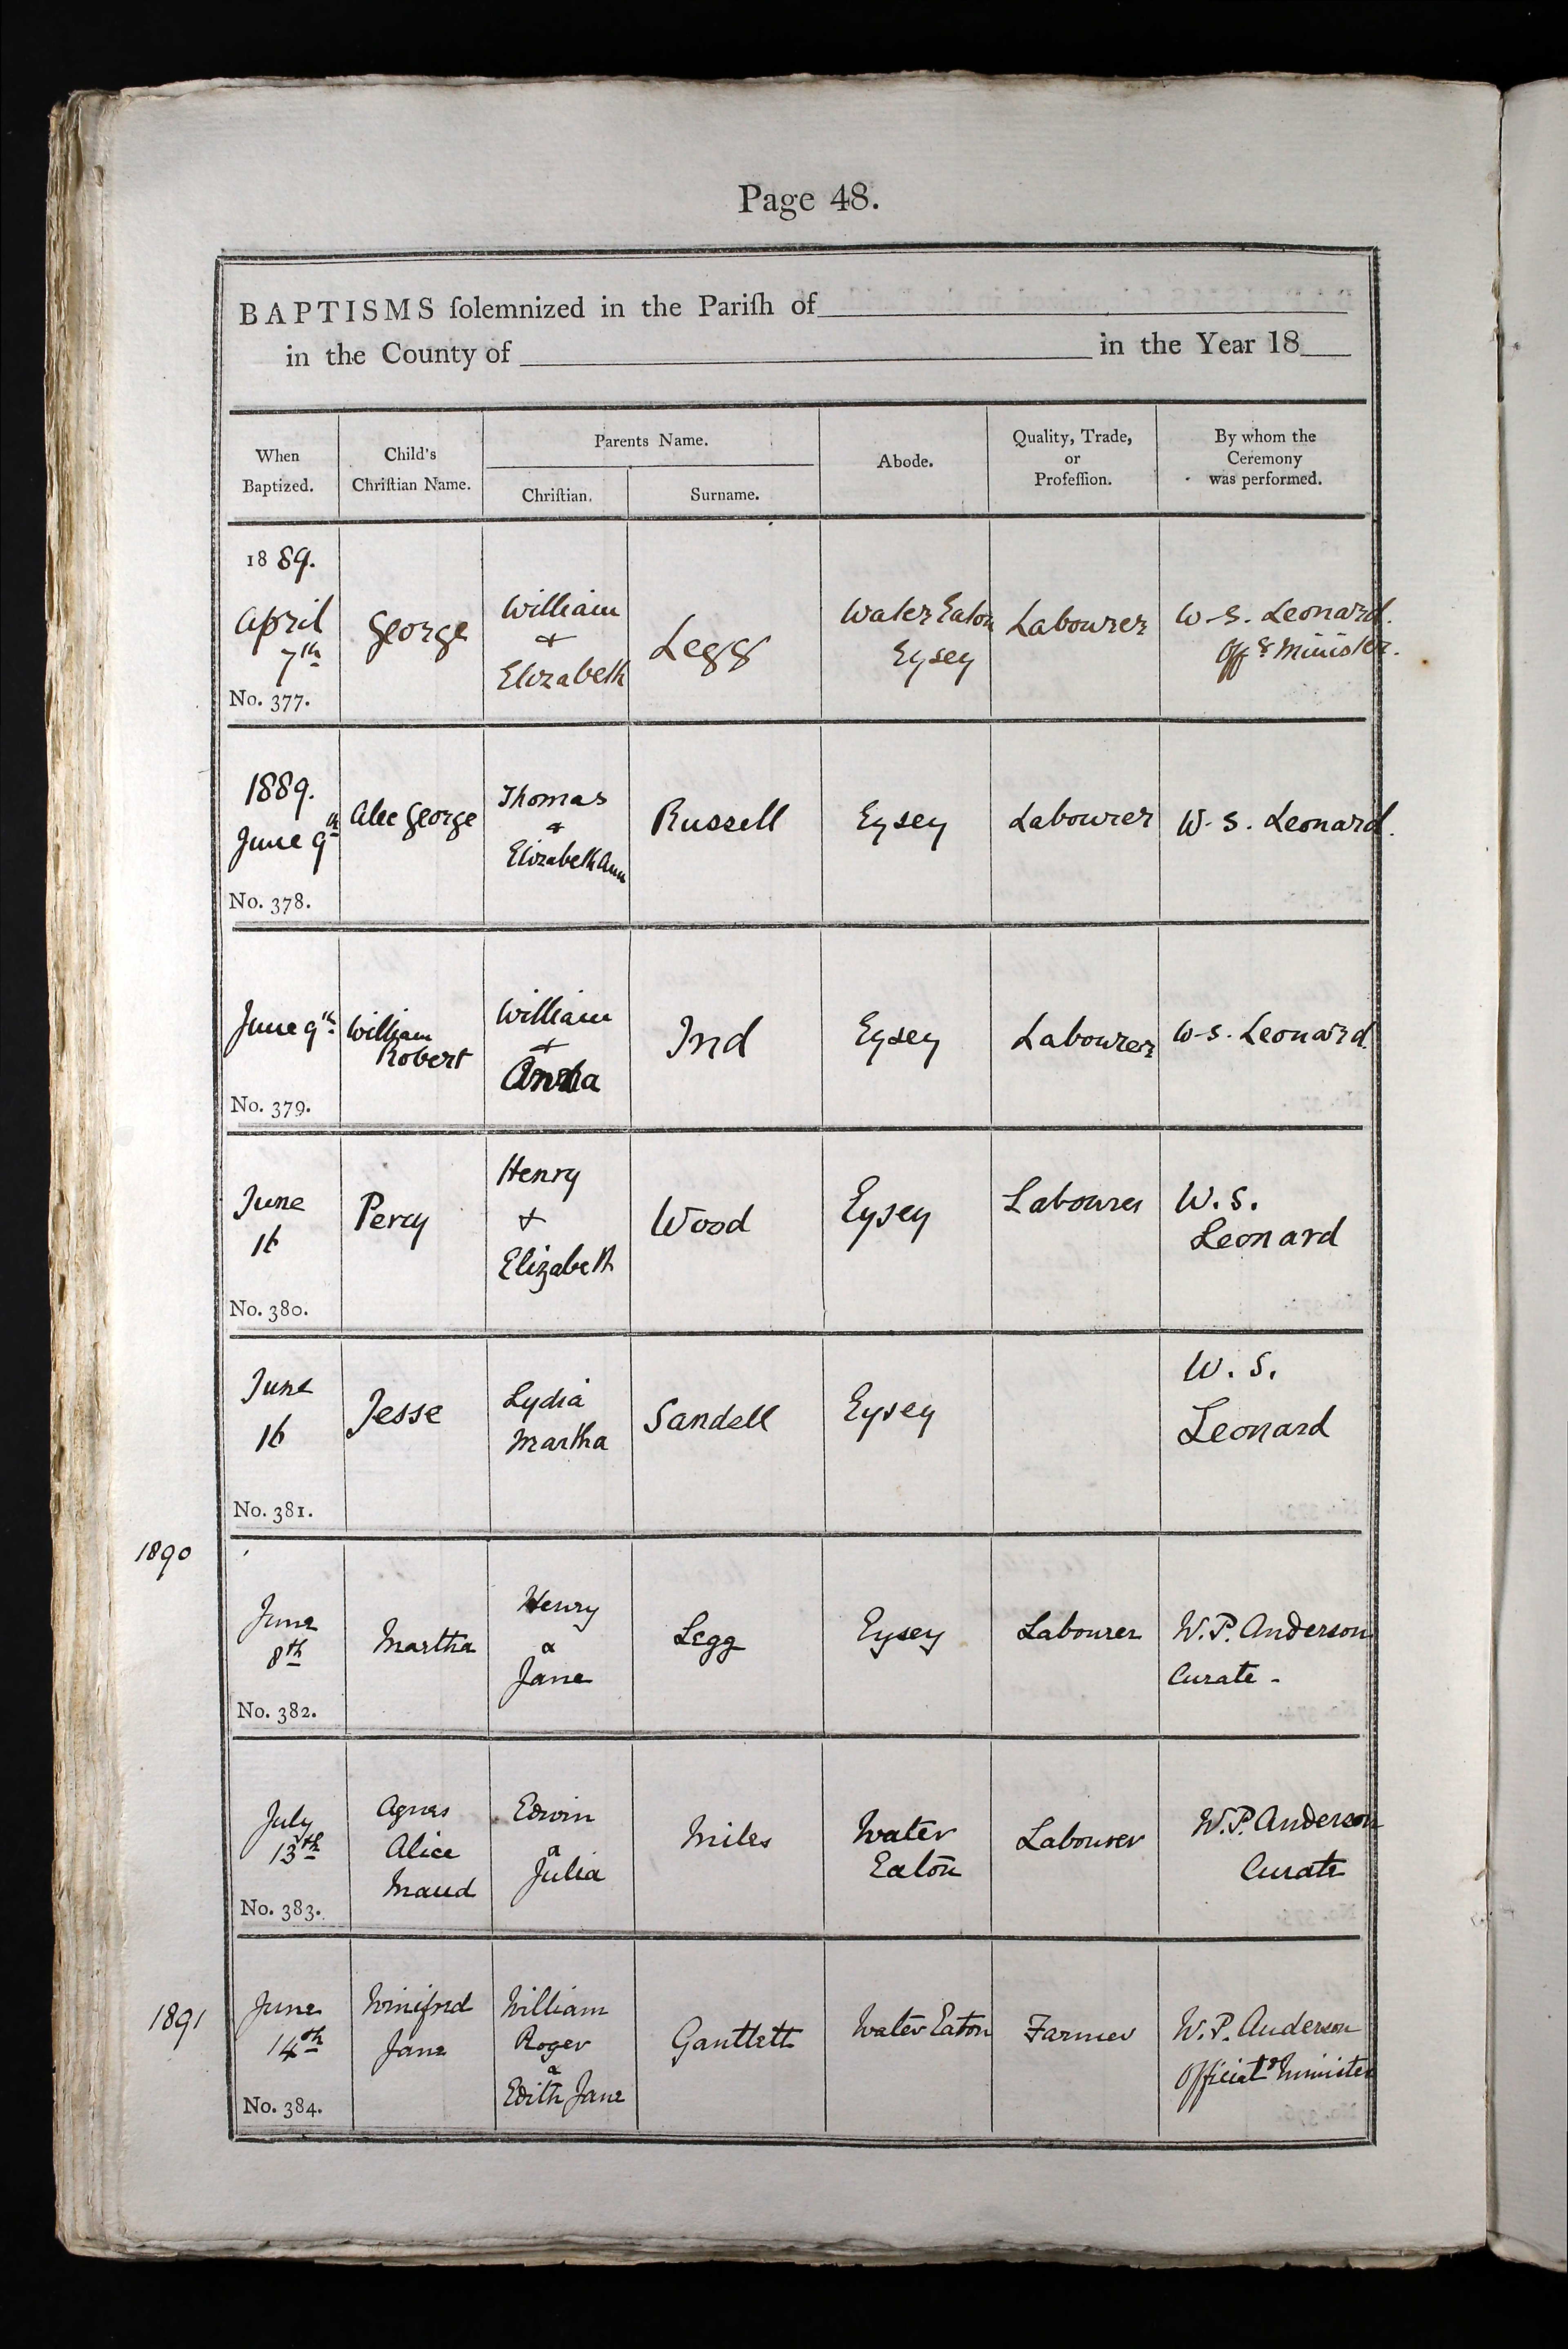 Page 48.
BAPTISMS ſolemnized in the Pariſh of
in the County of in the Year 18
When Baptized.
Child's Chriſtian Name.
Parents Name.
Chriſtian.
Surname.
Abode.
Quality, Trade, or Profeſſion.
By whom the Ceremony was performed.
1889.
April
7th
No. 377.
George
William
+
Elizabeth
Legg
Water Eaton
Eysey
Labourer
W. S. Leonard.
Offg Minister.
1889.
June 9th
No. 378.
Alec George
Thomas
&
Elizabeth Ann
Russell
Eysey
Labourer
W. S. Leonard.
June 9th
No. 379.
William
Robert
William
+
Ind
Eysey
Labourer
W. S. Leonard.
June
16
No. 380.
Percy
Henry
+
Elizabeth
Wood
Eysey
Labourer
W. S.
Leonard
June
16
No. 381.
Jesse
Lydia
Martha
Sandell
Eysey
W. S.
Leonard
1890
June
8th
No. 382.
Martha
Henry
&
Jane
Legg
Eysey
Labourer
W. P. Anderson
Curate -
July
13th
No. 383.
Agnes
Alice
Maud
Edwin
&
Julia
Miles
Water
Eaton
Labourer
W. P. Anderson
Curate
1891
June
14th
No. 384.
Winifred
Jane
William
Roger
&
Edith Jane
Gantlett
Water Eaton
Farmer
W. P. Anderson
Officiatg Minister